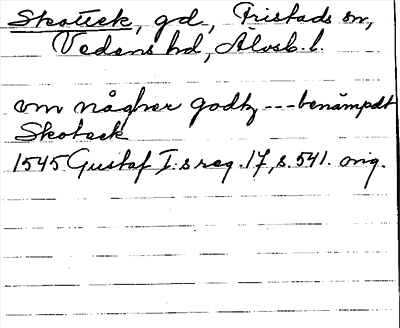 Skoteek, gd, Fristads sn,
Vedens hd, Älvsb. l.
om någher godtz --- benämpdt
Skoteek
1545 Gustaf I:s reg. 17, s. 541. orig.